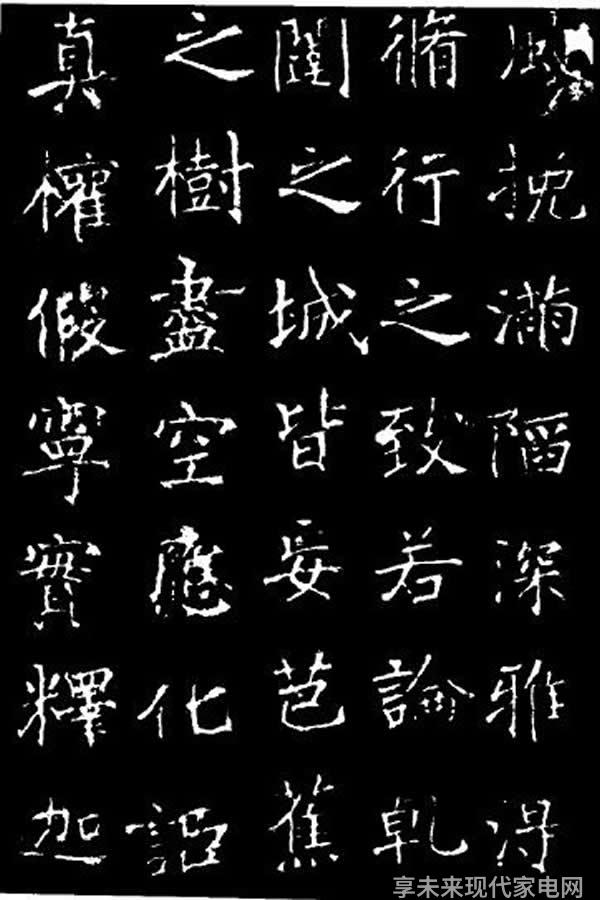 風挽滿陷深雅淂
脩行之致若論乹
闥之城皆妄芭蕉
之樹盡空應化詎
真權假寧實釋迦
享未来现代家电网